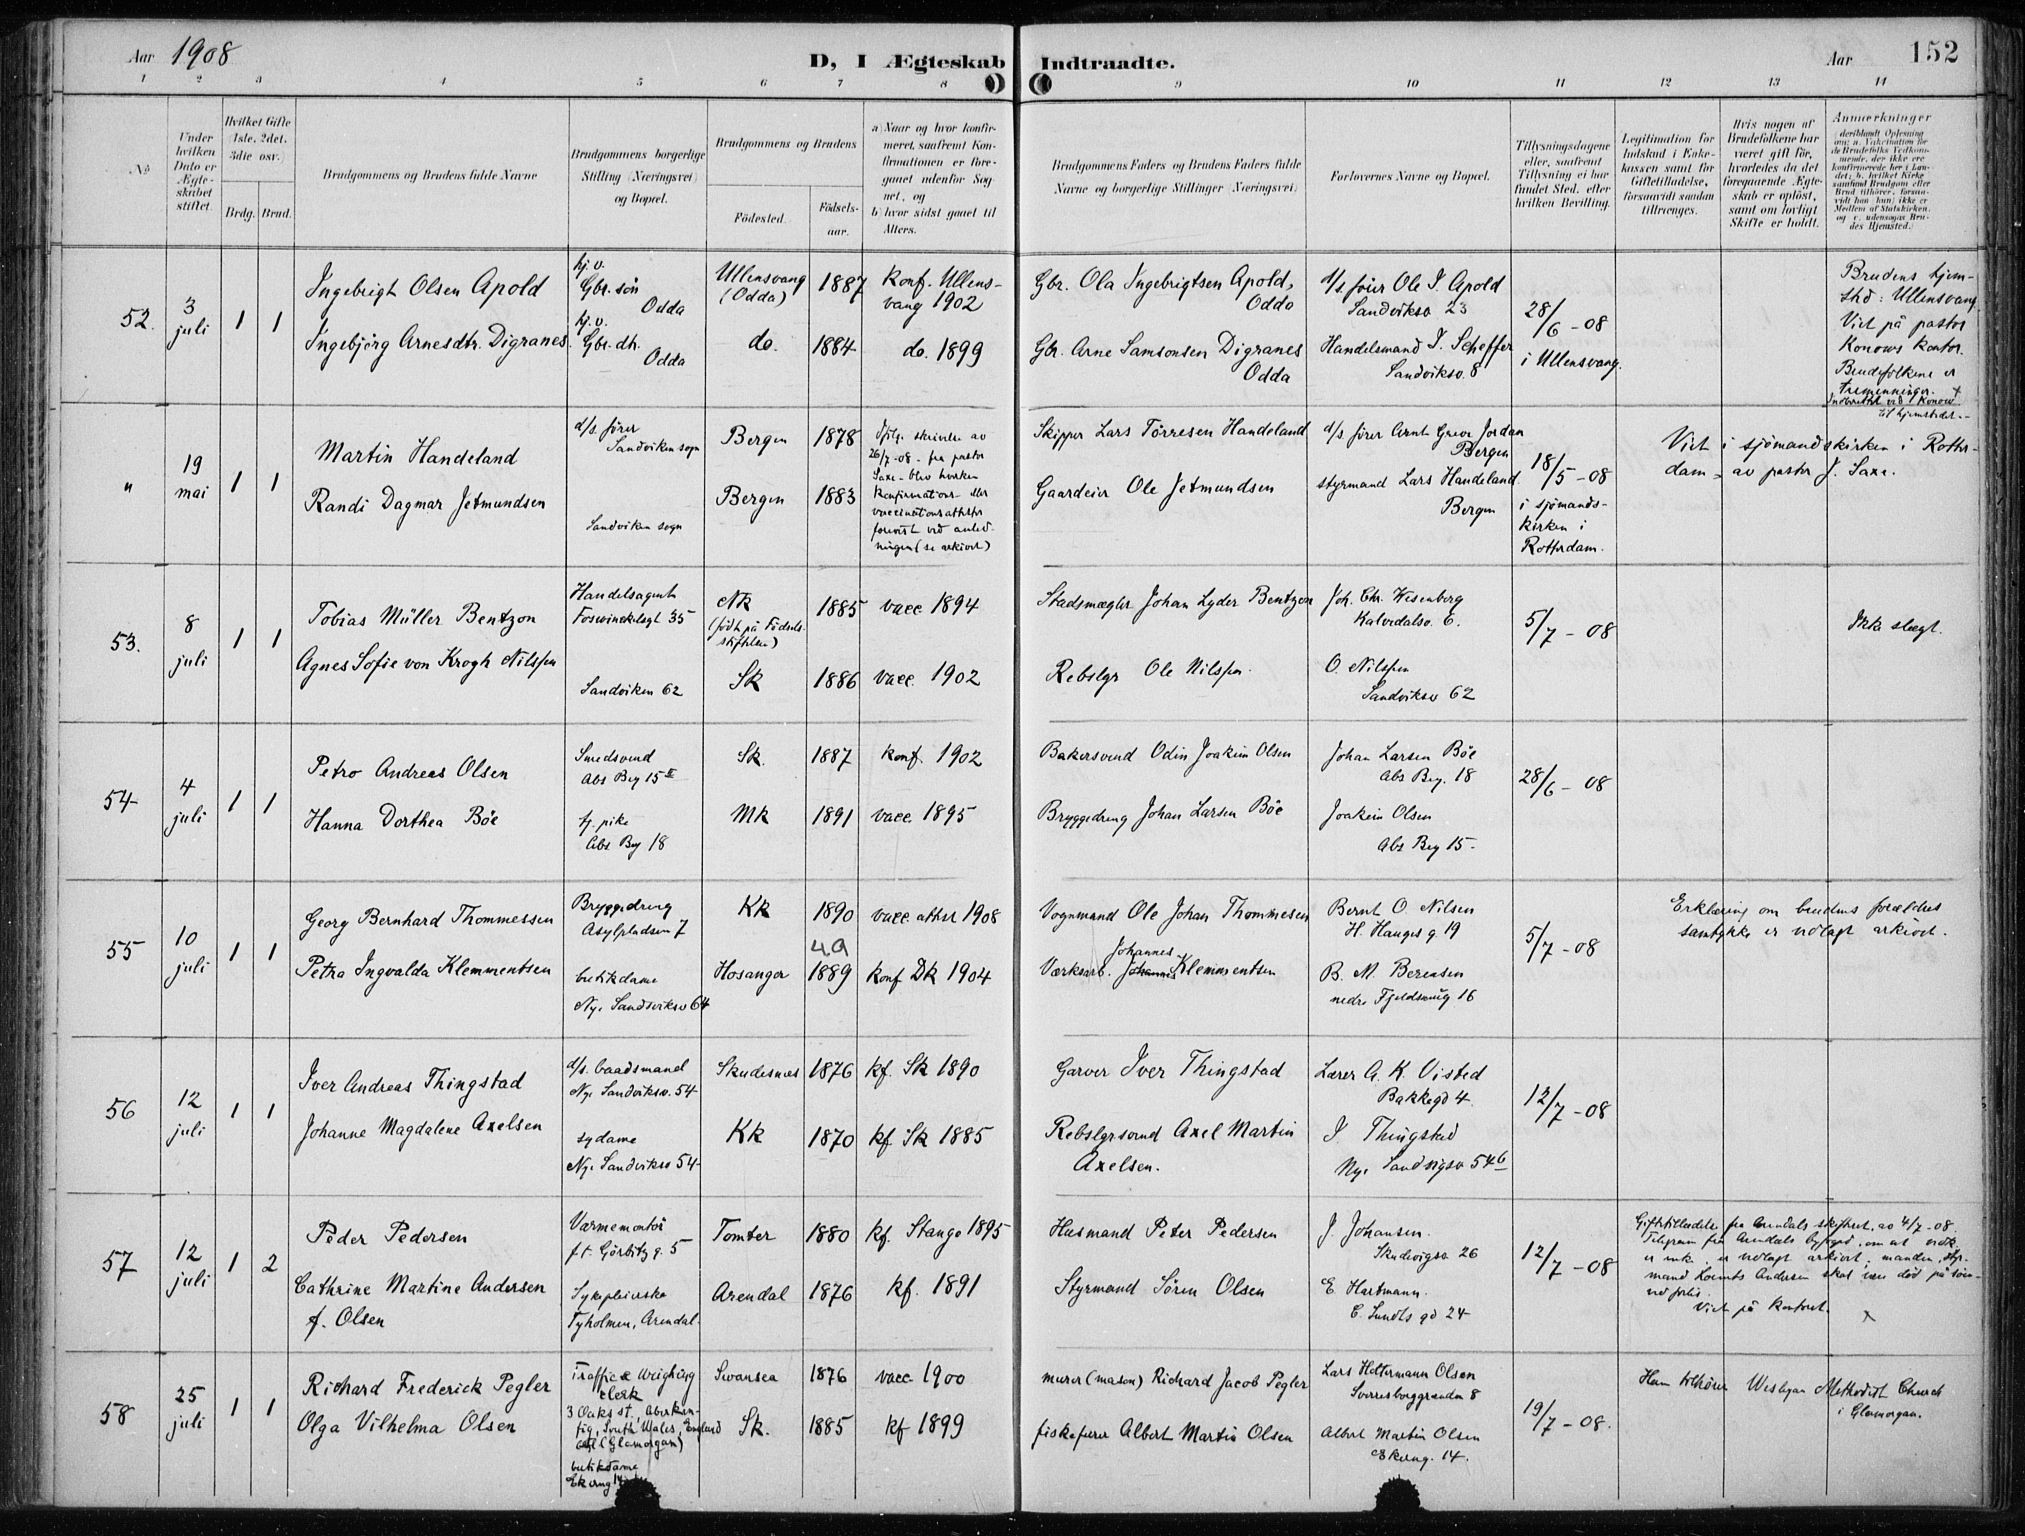 Aar 1908
D, I Ægteskab Indtraadte.
Aar 152
1 2 3 4 5 6 7 8 9 10 11 12 13 14
No
Under hvilken Dato er Ægteskabet stiftet.
Hvilket Gifte (1ste, 2det, 3die osv.)
Brdg. Brud.
Brudgommens og Brudens fulde Navne
Brudgommens borgerlige Stilling (Næringsvei) og Bopæl.
Brudgommens og Brudens
Fødested.
Fødselsaar.
a) Naar og hvor konfirmeret, saafremt Konfirmationen er foregaaet udenfor Sognet, og
b) hvor sidst gaaet til Alters.
Brudgommens Faders og Brudens Faders fulde Navne og borgerlige Stillinger (Næringsvei)
Forlovernes Navne og Bopæl.
Tillysningsdagene eller, saafremt Tillysning ei har fundet Sted, efter hvilken Bevilling.
Legitimation for Indskud i Enkekassen samt for Giftetilladelse, forsaavidt saadan tiltrænges.
Hvis nogen af Brudefolkene har været gift før, hvorledes da det foregaaende Ægteskab er opløst, samt om lovligt Skifte er holdt.
Anmærkninger
(deriblandt Oplysning om: a. Vakcination for de Brudefolks Vedkommende, der ikke ere konfirmerede her i Landet; b. hvilket Kirkesamfund Brudgom eller Brud tilhører, forsaavidt han (hun) ikke er Medlem af Statskirken, og c. udensogns Brudes Hjemsted.)
52. 3 juli 1 1
Ingebrigt Olsen Apold
hj. v. Gbr. søn Odda
Ullensvang (Odda) 1887
Konf. Ullensvang 1902
Gbr. Ola Ingebrigtsen Apold, Odda
d/s fører Ole I. Apold Sandviksv 23
28/6 - 08 i Ullensvang.
Brudens hjemsted: Ullensvang
Viet på pastor Konows kontor.
Brudefolkene er tremenninger. +
Indberettet ved Konow til hjemstedet.
Ingebjørg Arnesdtr. Digranes
hj. v. Gbr. dt. Odda
do. 1884
do. 1899
Gbr. Arne Samsonsen Digranes Odda
Handelsmand J. Scheffer Sandviksv. 8
" 19 mai 1 1
Martin Handeland
d/s. fører Sandviken sogn
Bergen 1878
Ifølg. skrivelse av 26/7 - 08 - fra pastor Saxe - blev hverken Konfirmations- eller vaccinationsattester forevist ved anledningen (se arkivet)
Skipper Lars Tørresen Handeland
d/s. fører Arnt Greve Jordan Bergen
18/5 - 08 i sjømandskirken i Rotterdam.
Viet i sjömandskirken i Rotterdam - av pastor J. Saxe.
Randi Dagmar Jetmundsen
Sandviken sogn
Bergen 1883
Gaardeier Ole Jetmundsen
styrmand Lars Handeland Bergen
53. 8 juli 1 1
Tobias Müller Bentzon
Handelsagent Foswinckelsgt 35
Nk (født på Fødselsstiftelsen) 1885
vacc 1894
Stadsmægler Johan Lyder Bentzon
Joh. Chr. Wesenberg Kalvedalsv. 6.
5/7 - 08
Ikke slegt.
Agnes Sofie von Krogh Nilssen
Sandviken 62
Sk 1886 vacc. 1902
Rebslgr Ole Nilssen
O. Nilssen Sandviksv 62
54 4 juli 1 1
Petro Andreas Olsen
Smedsvend Abs Bey 15
Sk. 1887 konf. 1902
Bakersvend Odin Joakim Olsen
Johan Larsen Böe Abs Bey. 18
28/6 - 08
Hanna Dorthea Böe
tj. pike Abs Bey 18
Mk 1891 vacc. 1895
Bryggedreng Johan Larsen Böe
Joakim Olsen Abs Bey 15
55 10 juli 1 1
Georg Bernhard Thommessen
Bryggedreng Asylpladsen 7
Kk 1890 vacc. attest 1908
Vognmand Ole Johan Thommesen
Bernt O Nilsen H. Hauges g. 19
5/7 - 08
Erklæring om brudens forældres samtykke er vedlagt arkivet.
Petra Ingvalda Klemmentsen
butikdame Nye Sandviksv 64
Hosanger 1889 konf Dk 1904
Johannes
Værksarb. Johannes Klemmentsen
B. M. Berensen nedre Fjeldsmug 16
56 12 juli 1 1
Iver Andreas Thingstad
d/s. baadsmand Nye Sandviksv. 54
Skudesnes 1876 kf. Sk 1890
Garver Iver Thingstad
Lærer A. K. Visted Bakkegd 4
12/7 - 08
Johanne Magdalene Axelsen
sydame Nye Sandviksv 54
Kk 1870 kf Sk 1885
Rebslgrsvend Axel Martin Axelsen.
I Thingstad Nye Sandvigsv 54b
57 12 juli 1 2
Peder Pedersen
Varmemontør f.t. Görbitz g. 5
Tomter 1880 kf. Stange 1895
Husmand Peter Pedersen
J. Johansen. Skudevigsv 26
12/7 - 08
Giftetilladelse fra Arendals skifteret, av 4/7 - 08.
Telegram fra Arendals byfoged, om at vedk. er enke, er vedlagt arkivet; manden, styrmand Andersen skal være død på sjøen
Viet på kontoret. x
Cathrine Martine Andersen f. Olsen
Sykepleierske Tyholmen, Arendal
Arendal 1876 kf. 1891
Styrmand Sören Olsen
E. Hartmann. E. Sundts gd 24
58 25 juli 1 1
Richard Frederick Pegler
Traffic & Weighing clerk 3 Oaks st., Aberkenfig, South Wales, England (Glamorgan)
Swansea 1876 vacc 1900
murer (mason) Richard Jacob Pegler
Lars Holtermann Olsen Sverresborggraden 8
19/7 - 08.
Han tilhører Wesleyan Methodist Church i Glamorgan.
Olga Vilhelma Olsen
butikdame Ekreng 14
Sk. 1885 kf 1899
fiskefører Albert Martin Olsen
Albert Martin Olsen Ekreng. 14.